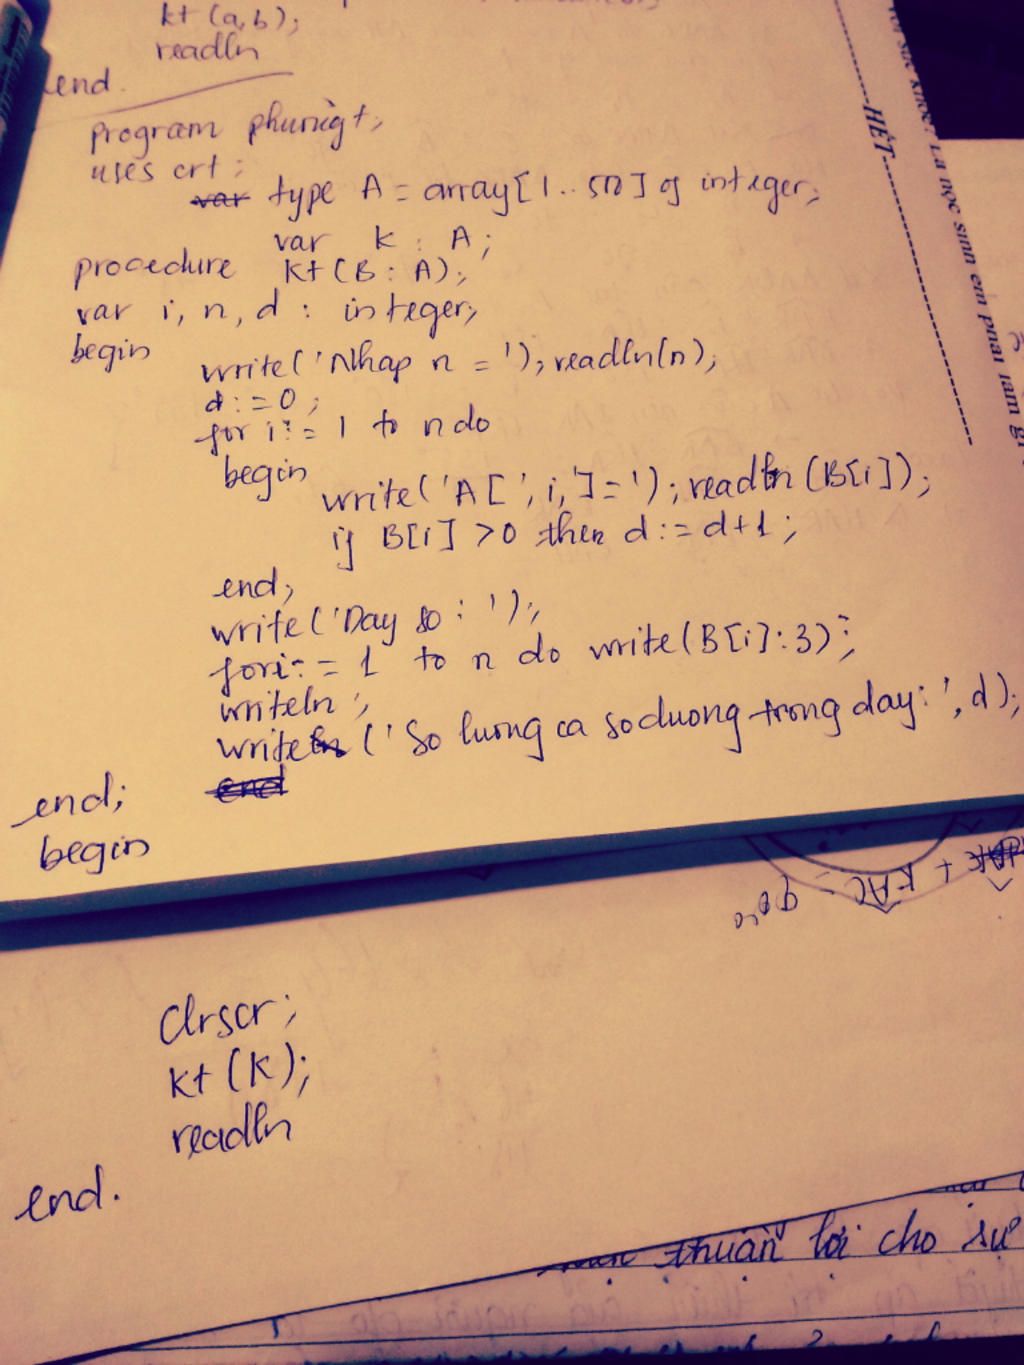 kt(a,b);
readln
end.
program phunigt;
uses crt;
var type A = array[1..500] of integer;
var k : A;
procedure kt(B : A);
var i, n, d : integer;
begin
write('Nhap n = '); readln(n);
d := 0;
for i := 1 to n do
begin
write('A[', i, ']= '); readln(B[i]);
if B[i] > 0 then d := d+1;
end;
write('Day so : ');
for i := 1 to n do write(B[i]:3);
writeln;
writeln ('So luong ca so duong trong day: ', d);
end
end;
begin
clrscr;
kt(k);
readln
end.
HẾT
thuận lợi cho sự